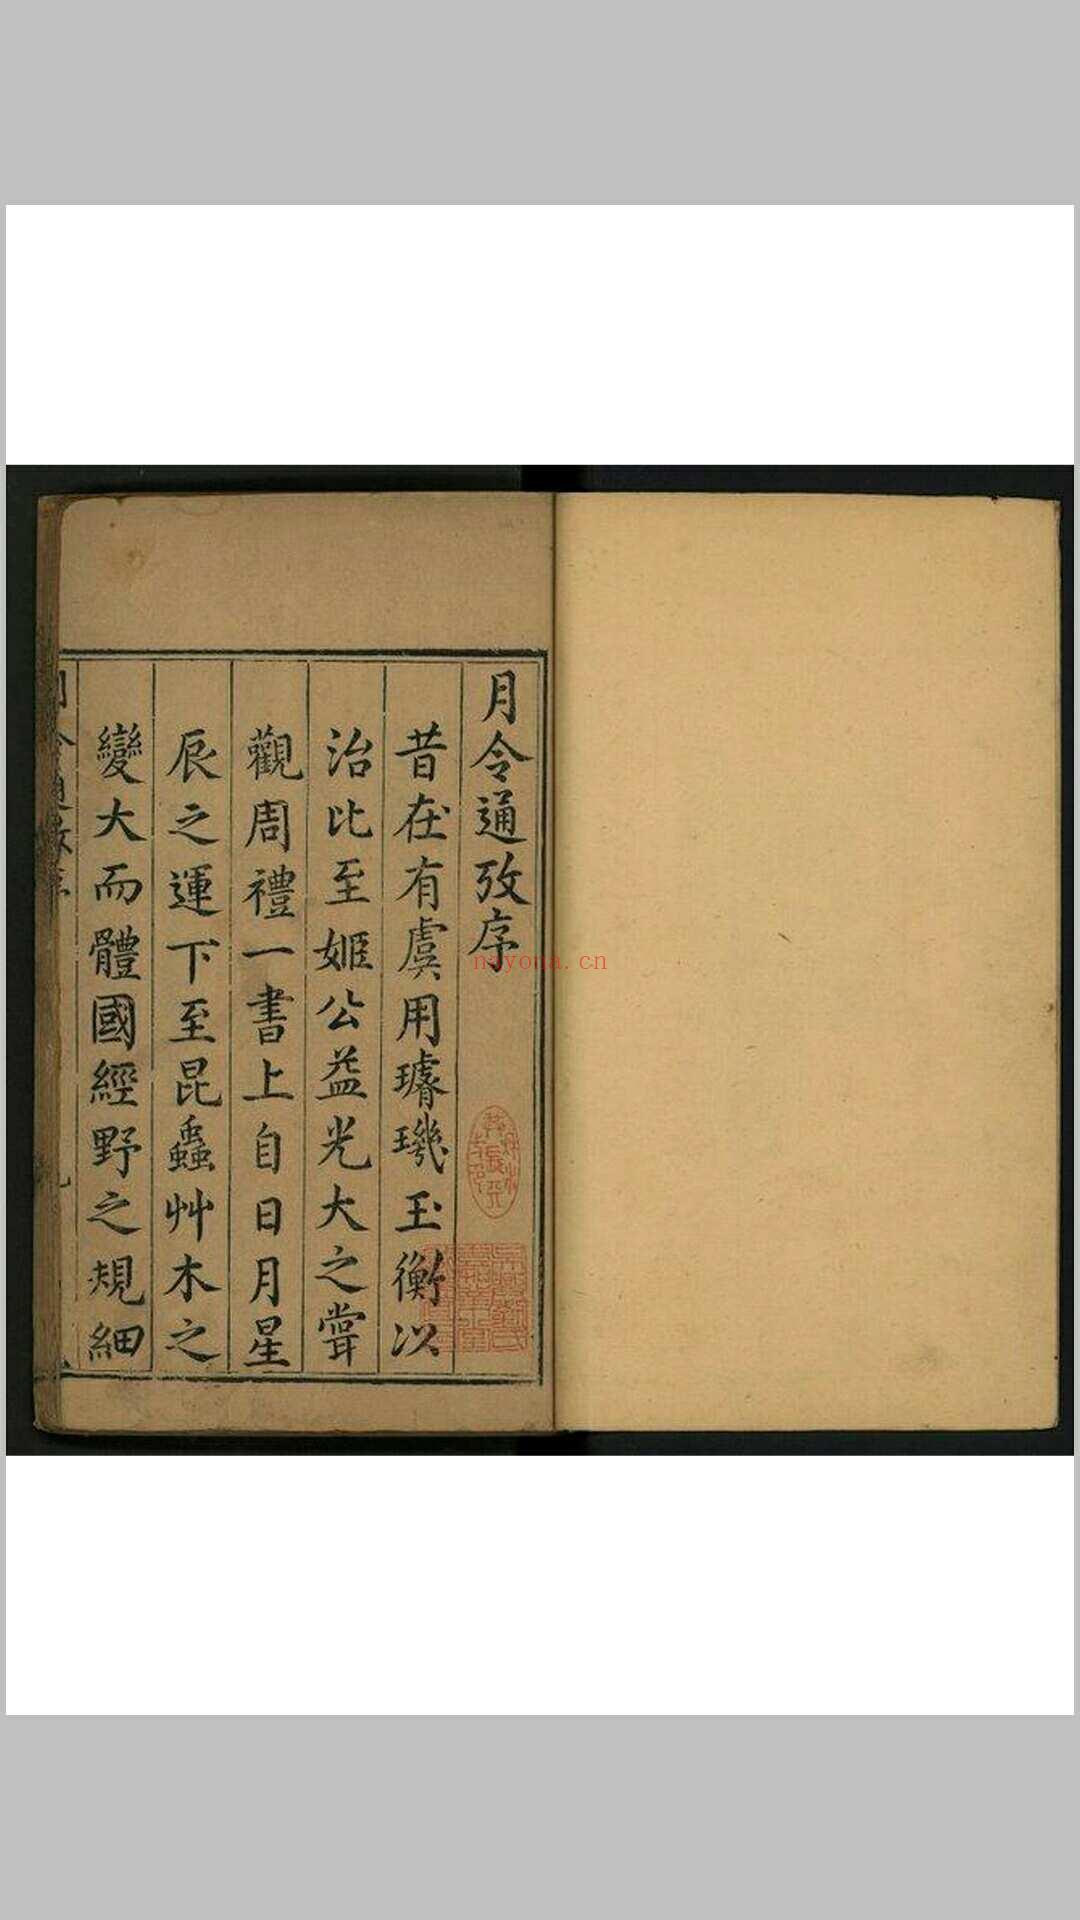 月令通攷序
昔在有虞用璿璣玉衡以
治比至姬公益光大之嘗
觀周禮一書上自日月星
辰之運下至昆蟲艸木之
變大而體國經野之規細
月令通攷序
nayona.cn